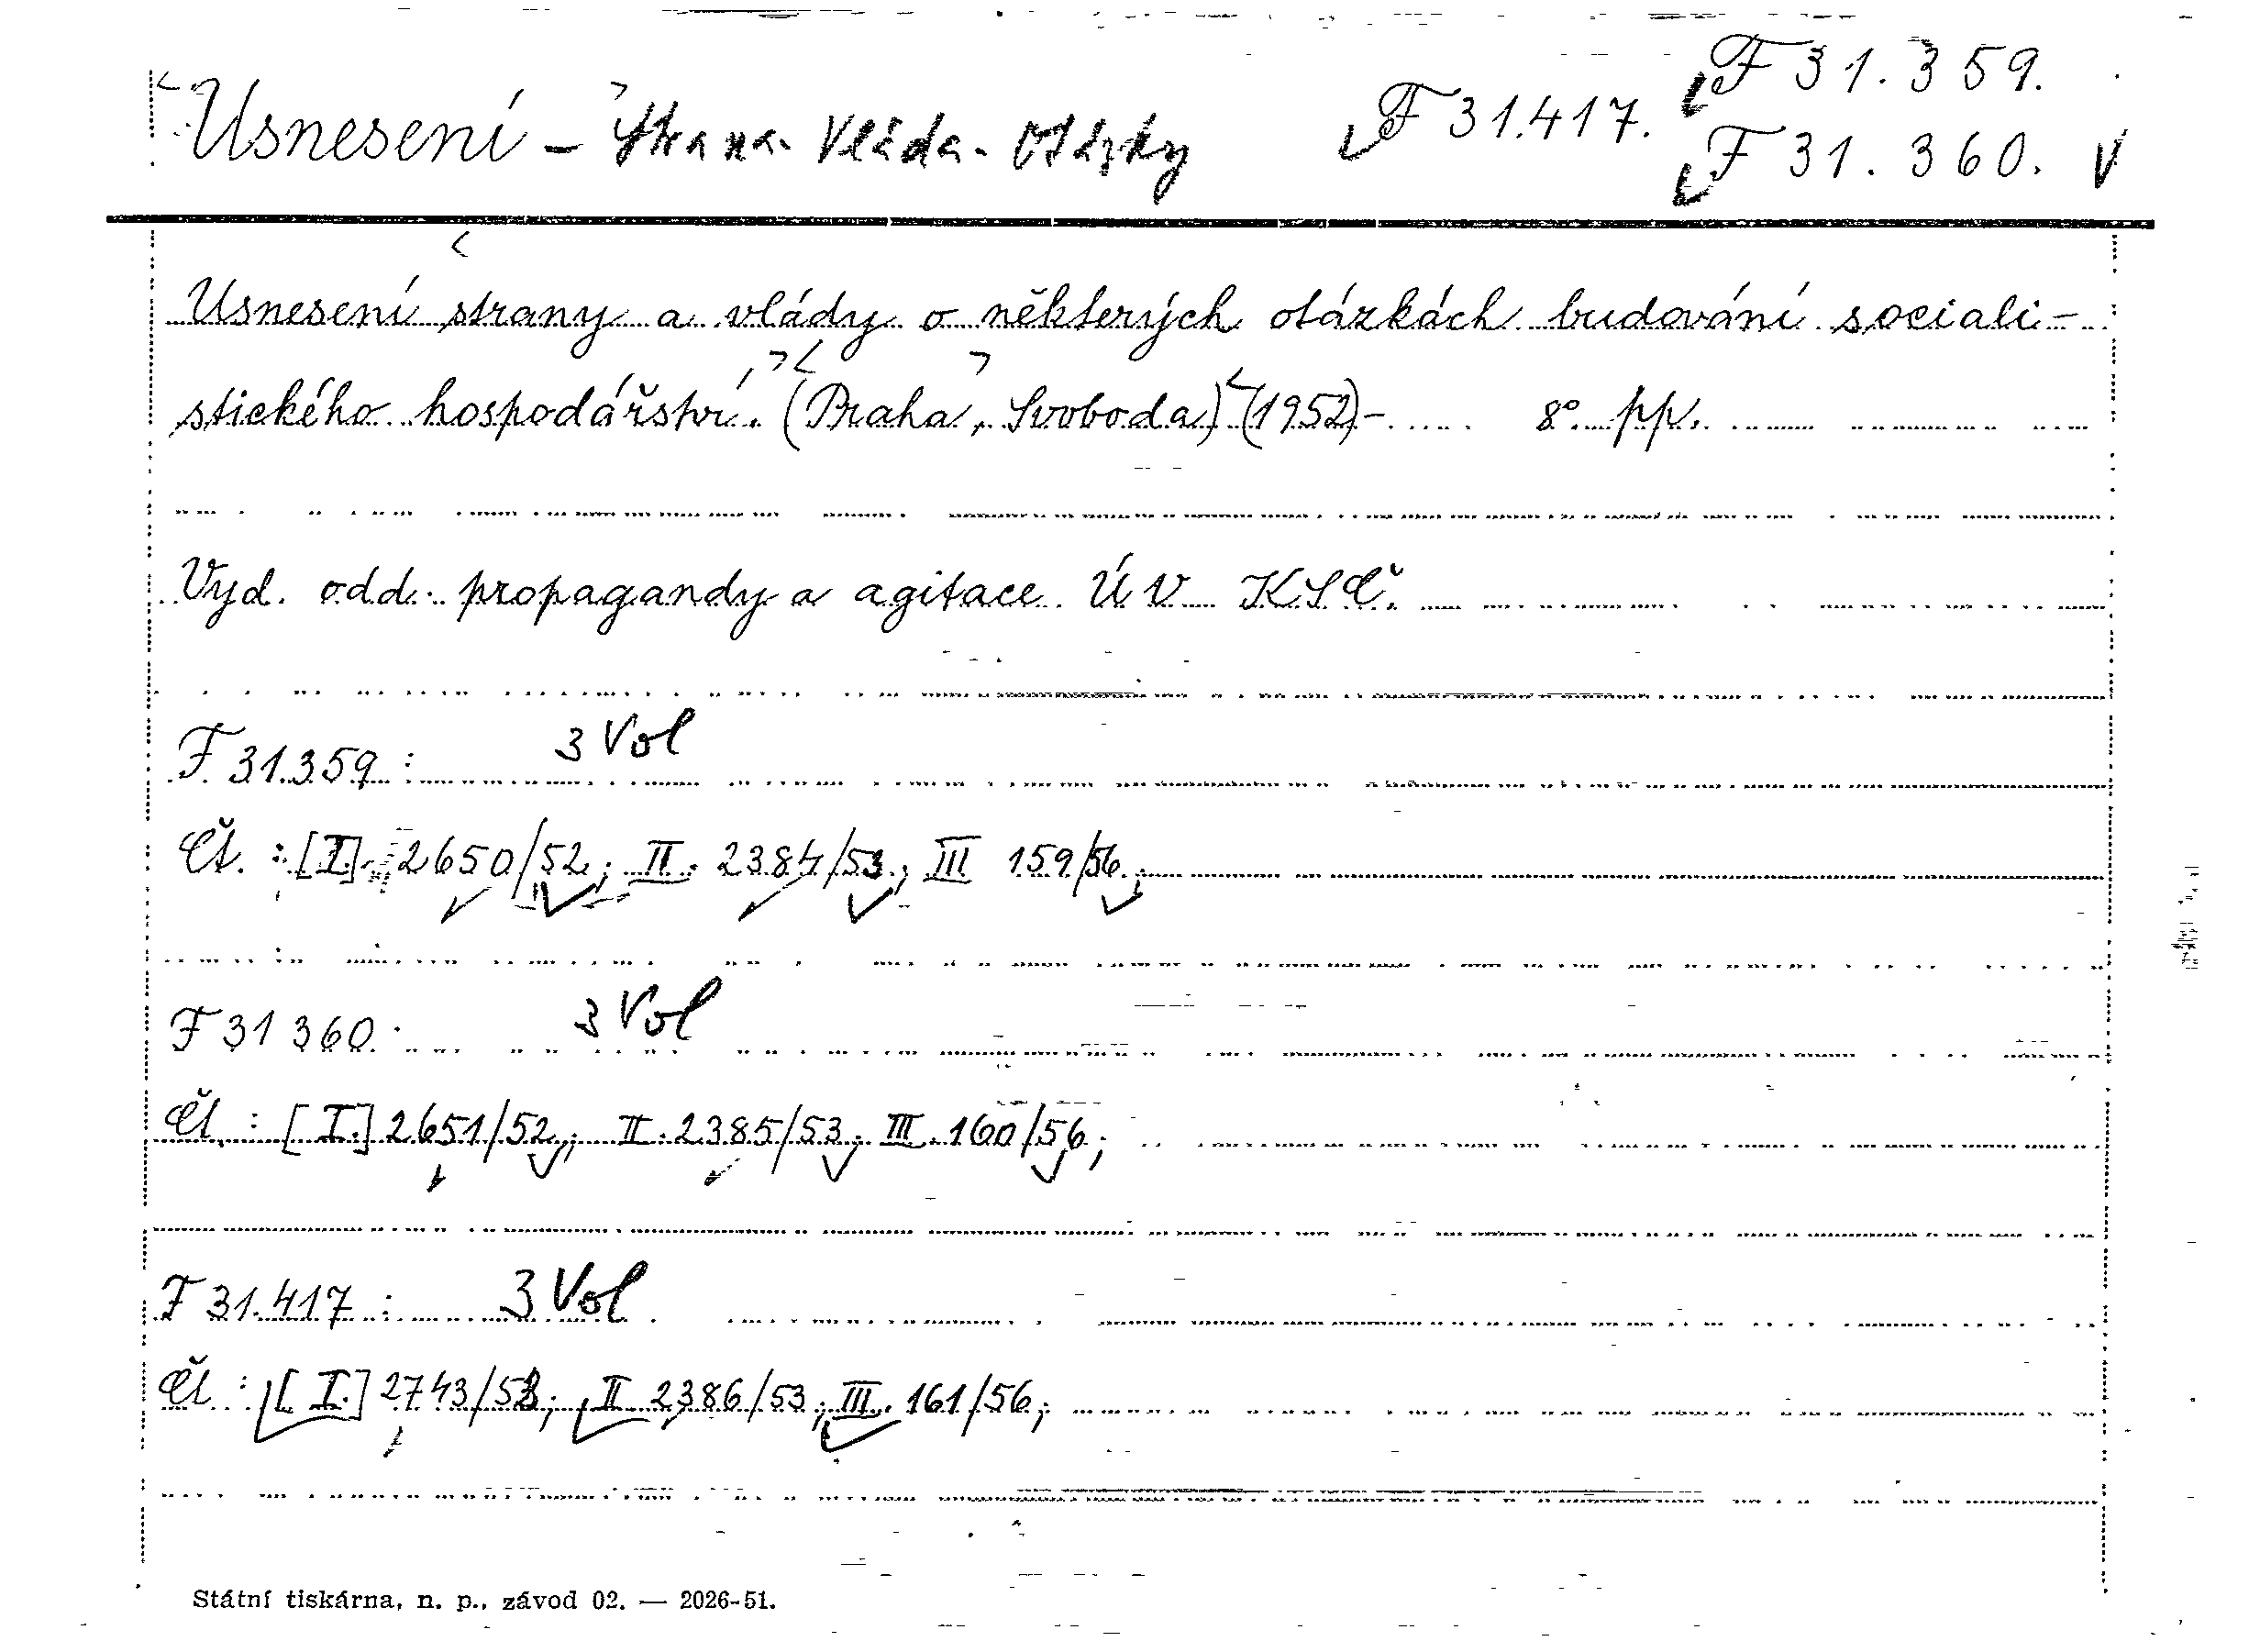 Usnesení - Strana - Vláda - Otázky F 31.417. F 31.359.
F 31.360.
Usnesení strany a vlády o některých otázkách budování sociali-
stického hospodářství. (Praha, Svoboda) (1952)- 8° pp.
Vyd. odd. propagandy a agitace ÚV KSČ.
F 31.359: 3 Vol
Čt.: [I.] 2650/52; II. 2384/53; III 159/56;
F 31 360: 3 Vol
Čt.: [I.] 2651/52; II. 2385/53; III. 160/56;
F 31.417: 3 Vol
Čt: [I.] 2743/53; II 2386/53; III. 161/56;
Státní tiskárna, n. p., závod 02. — 2026-51.